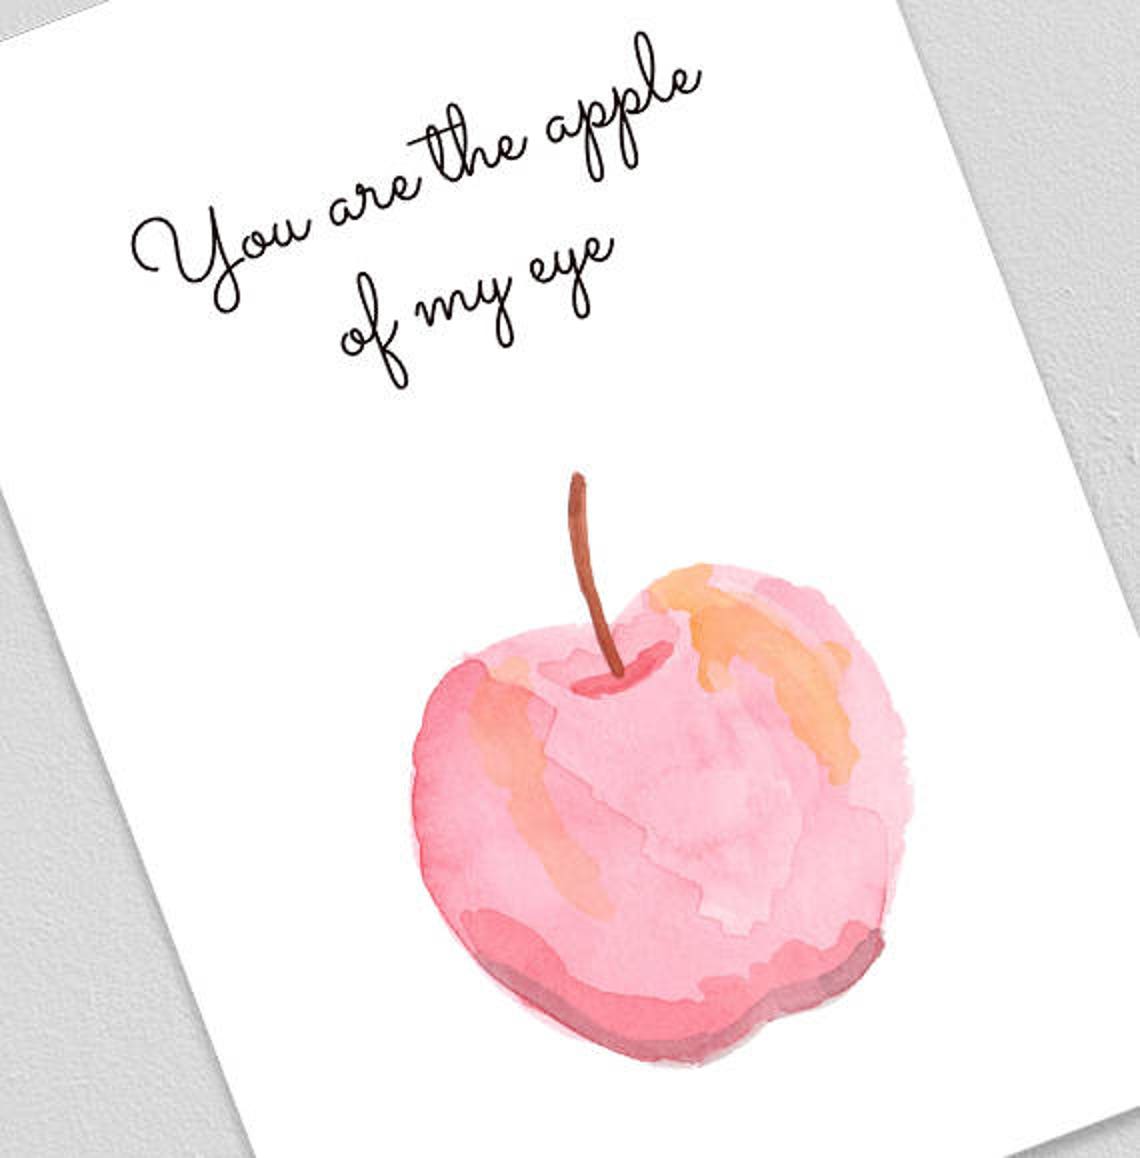 You are the apple
of my eye